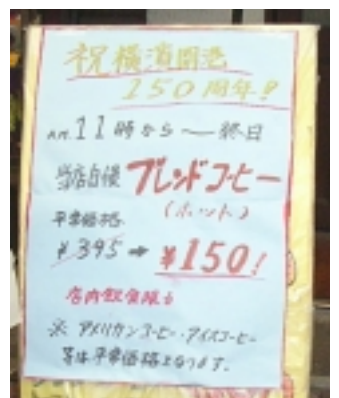 祝横濱開港
150周年!
AM.11時から〜終日
当店自慢 ブレンドコーヒー
(ホット)
平常価格
¥395➡¥150!
店内飲食限り
※アメリカンコーヒー・アイスコーヒー
等は平常価格となります。